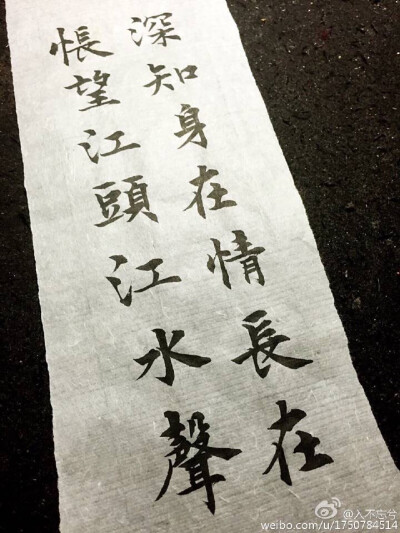 深知身在情長在
悵望江頭江水聲
@入不忘兮
weibo.com/u/1750784514